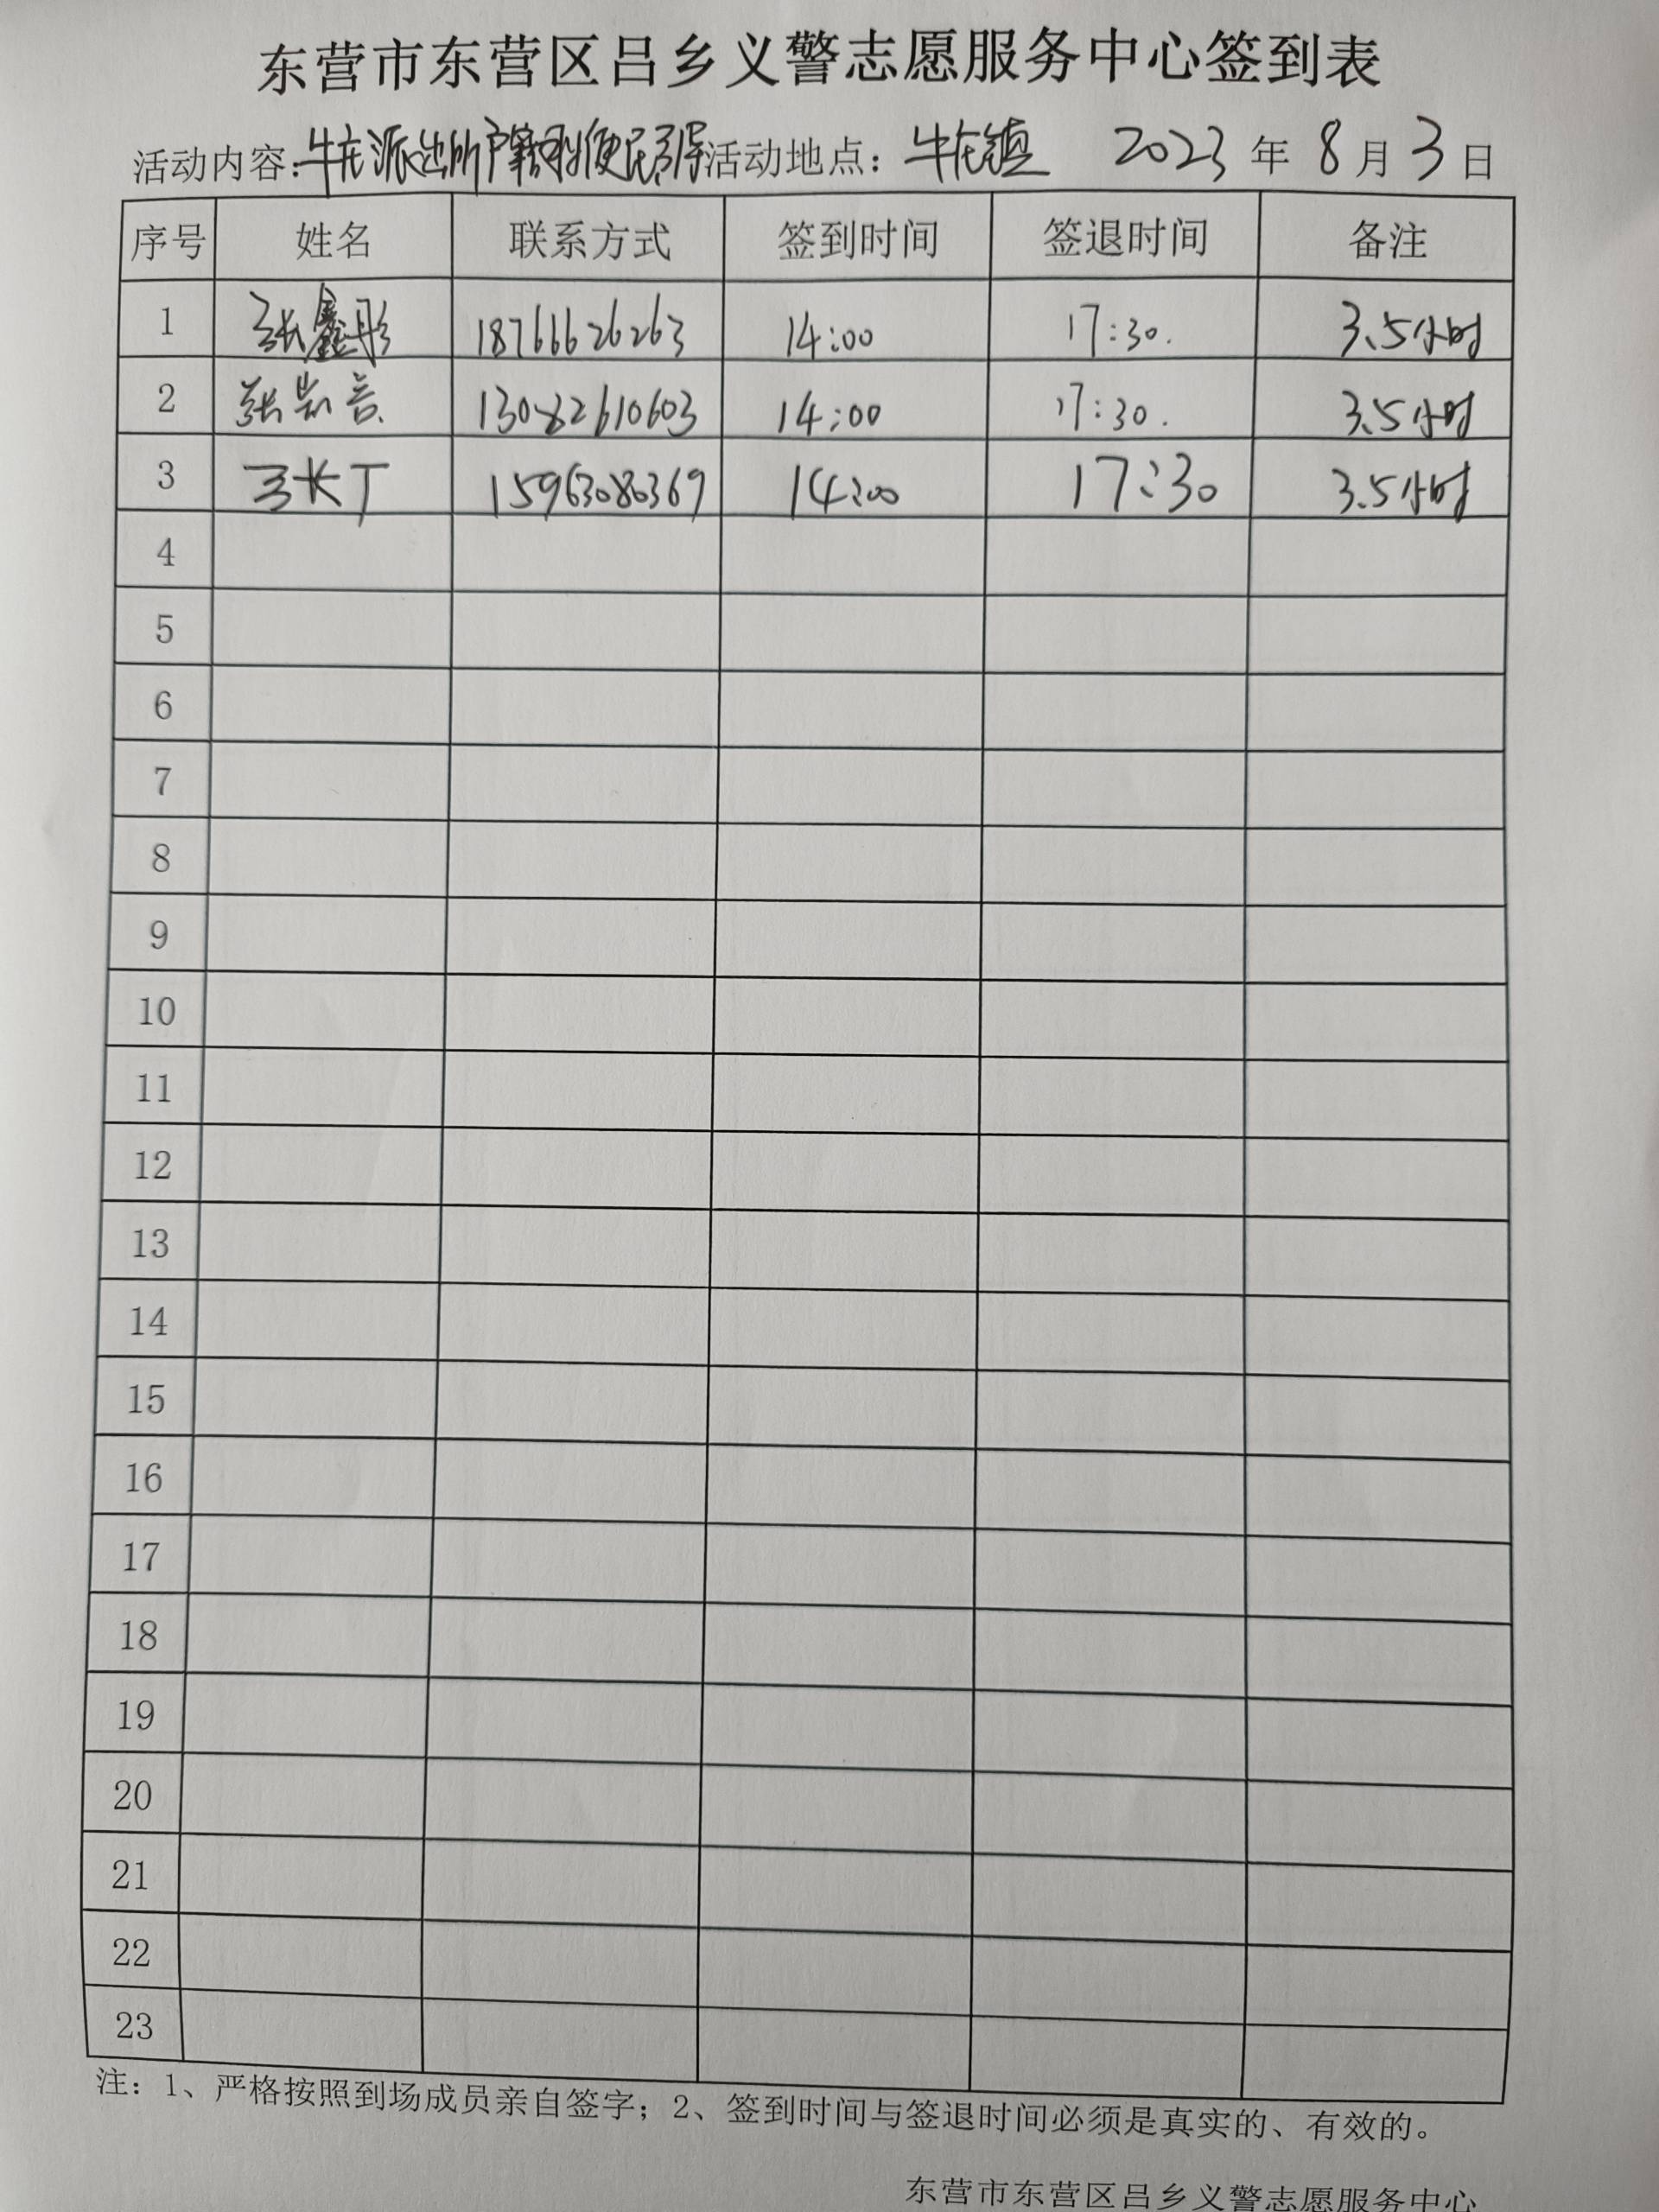 东营市东营区吕乡义警志愿服务中心签到表
活动内容：牛庄派出所户籍室便民引导 活动地点：牛庄镇 2023 年 8 月 3 日
序号 姓名 联系方式 签到时间 签退时间 备注
1 张鑫彤 18766626263 14:00 17:30. 3.5小时
2 张 13082610603 14:00 17:30. 3.5小时
3 张丁 15963080369 14:00 17:30 3.5小时
4
5
6
7
8
9
10
11
12
13
14
15
16
17
18
19
20
21
22
23
注：1、严格按照到场成员亲自签字；2、签到时间与签退时间必须是真实的、有效的。
东营市东营区吕乡义警志愿服务中心